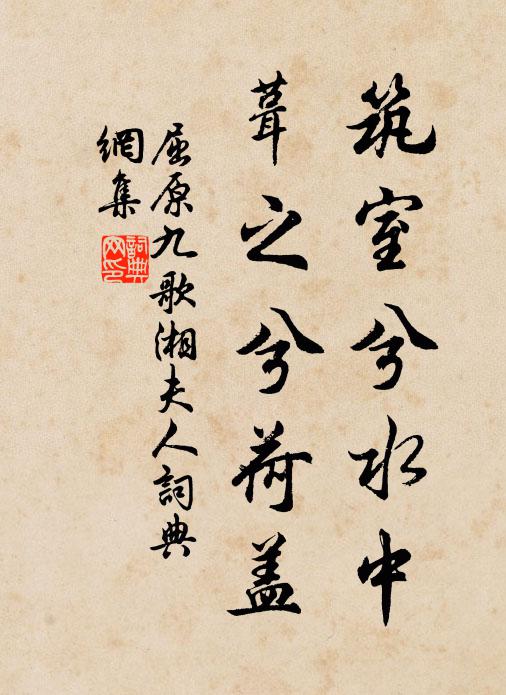 筑室兮水中
葺之兮荷盖
屈原九歌湘夫人詞典
網集
詞典
网印